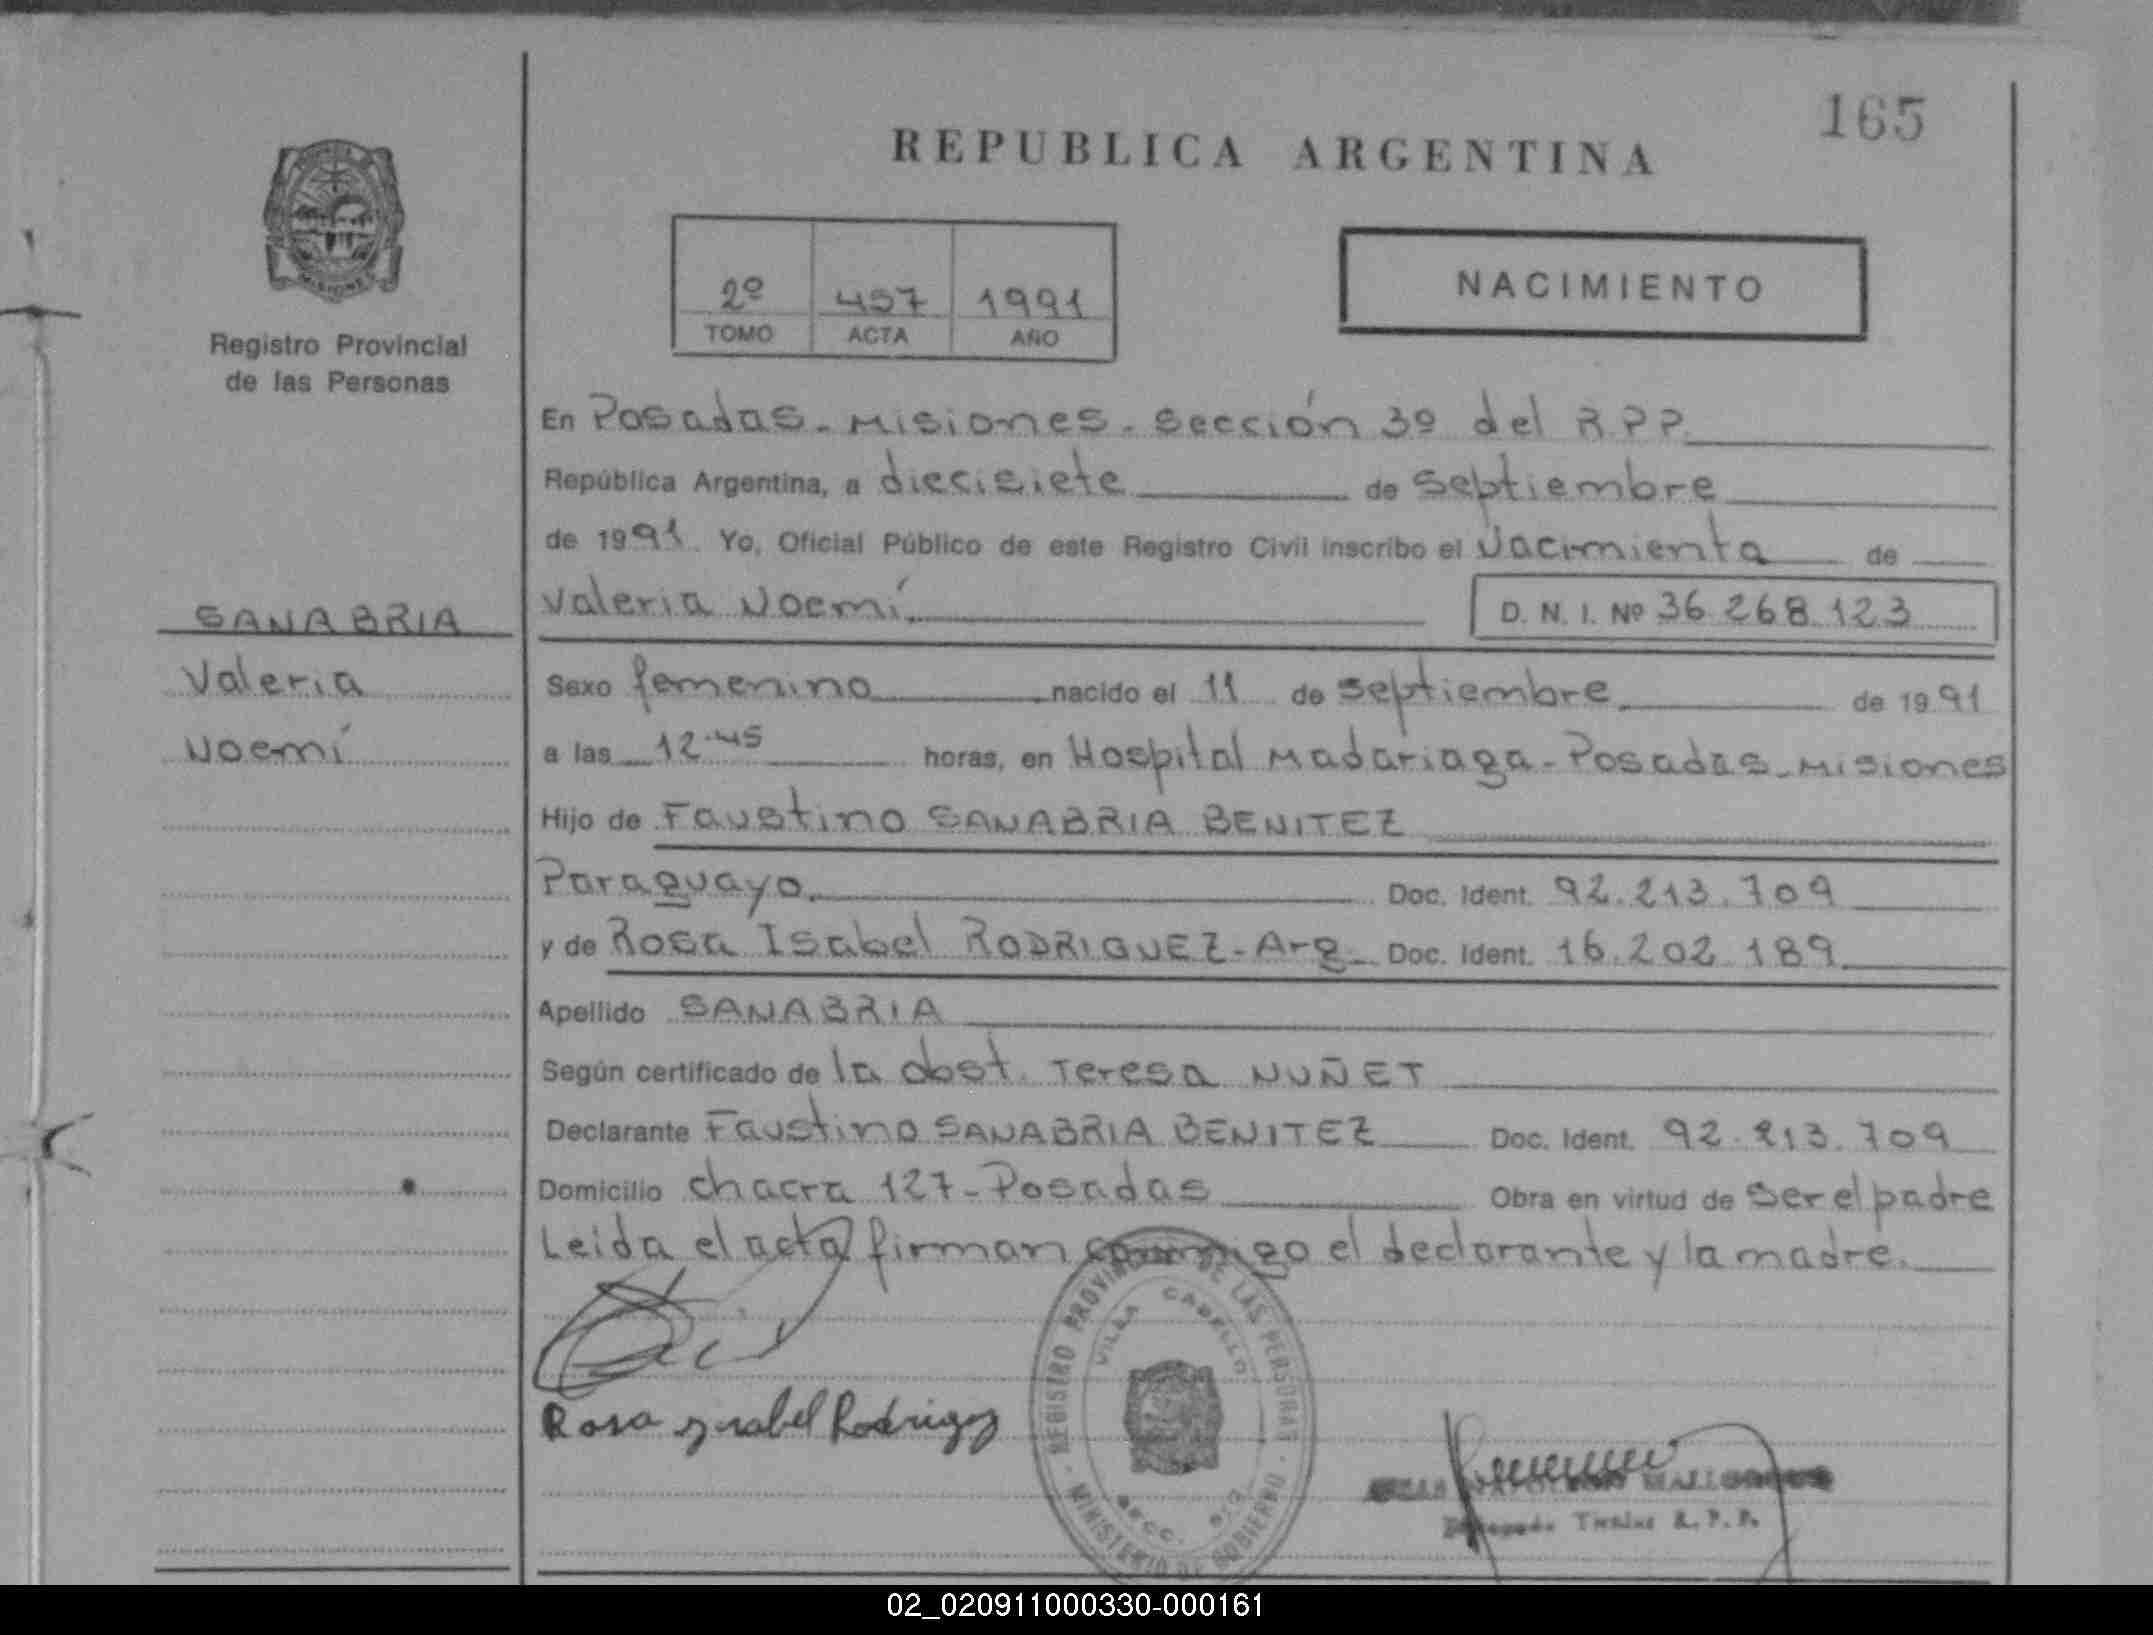 165
REPUBLICA ARGENTINA
MISIONES
Registro Provincial
de las Personas
2º 457 1991
TOMO ACTA AÑO
NACIMIENTO
En Posadas - Misiones - Sección 3º del R.P.P.
República Argentina, a diecisiete de septiembre
de 1991 Yo, Oficial Público de este Registro Civil inscribo el Nacimiento de
Valeria Noemí D. N. I. Nº 36.268.123
SANABRIA
Valeria
Noemí
Sexo femenino nacido el 11 de septiembre de 1991
a las 12.45 horas, en Hospital Madariaga - Posadas - Misiones
Hijo de Faustino SANABRIA BENITEZ
Paraguayo Doc. Ident. 92.213.709
y de Rosa Isabel RODRIGUEZ - Arg. Doc. Ident. 16.202.189
Apellido SANABRIA
Según certificado de la obst. Teresa NUÑET
Declarante Faustino SANABRIA BENITEZ Doc. Ident. 92.213.709
Domicilio chacra 127 - Posadas Obra en virtud de ser el padre
Leida el acta firman conmigo el declarante y la madre.
REGISTRO PROVINCIAL DE LAS PERSONAS
VILLA CABELLO
SECC.
MINISTERIO DE GOBIERNO
Rosa Ysabel Rodriguez
Titular R.P.P.
02_020911000330-000161